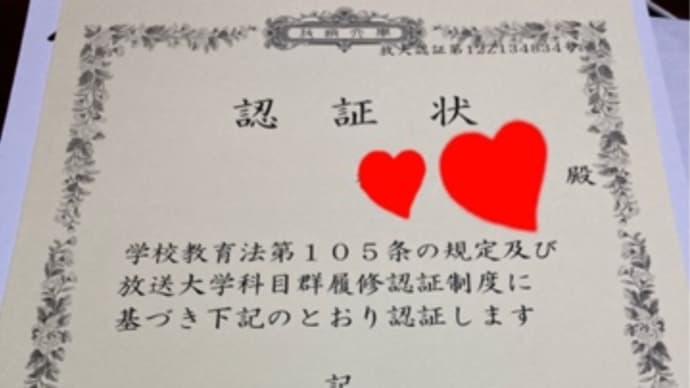 放大認証第12Z134834号
認 証 状
殿
学校教育法第１０５条の規定及び
放送大学科目群履修認証制度に
基づき下記のとおり認証します
記